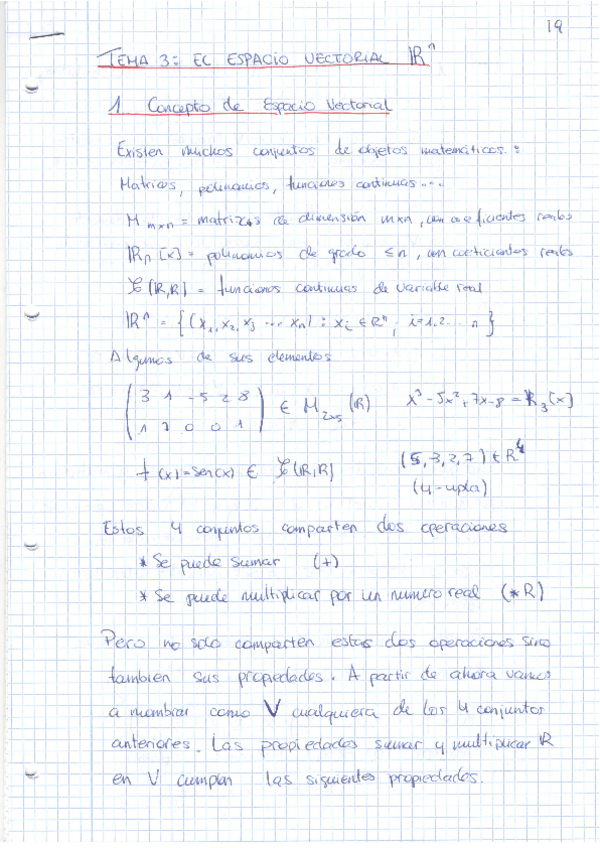 19
TEMA 3: EL ESPACIO VECTORIAL ℝⁿ
1 Concepto de Espacio Vectorial
Existen muchos conjuntos de objetos matemáticos:
Matrices, polinomios, funciones continuas...
M m×n = matrices de dimensión m×n, con coeficientes reales
ℝn [x] = polinomios de grado ≤n, con coeficientes reales
𝒞 (ℝ,ℝ) = funciones continuas de variable real
ℝⁿ = { (x₁, x₂, x₃ ... xₙ) : xᵢ ∈ ℝⁿ ; i=1,2... n }
Algunos de sus elementos
( 3 1 -5 2 8 ) ∈ M₂ₓ₅ (ℝ) x³-5x²+7x-8 = ℝ₃[x]
1 7 0 0 1
f(x)=sen(x) ∈ 𝒞(ℝ,ℝ) (5,3,2,7) ∈ ℝ⁴
(4-upla)
Estos 4 conjuntos comparten dos operaciones
* Se puede sumar (+)
* Se puede multiplicar por un numero real (*ℝ)
Pero no solo comparten estas dos operaciones sino
tambien sus propiedades. A partir de ahora vamos
a nombrar como V cualquiera de los 4 conjuntos
anteriores. Las propiedades sumar y multiplicar ℝ
en V cumplen las siguientes propiedades.